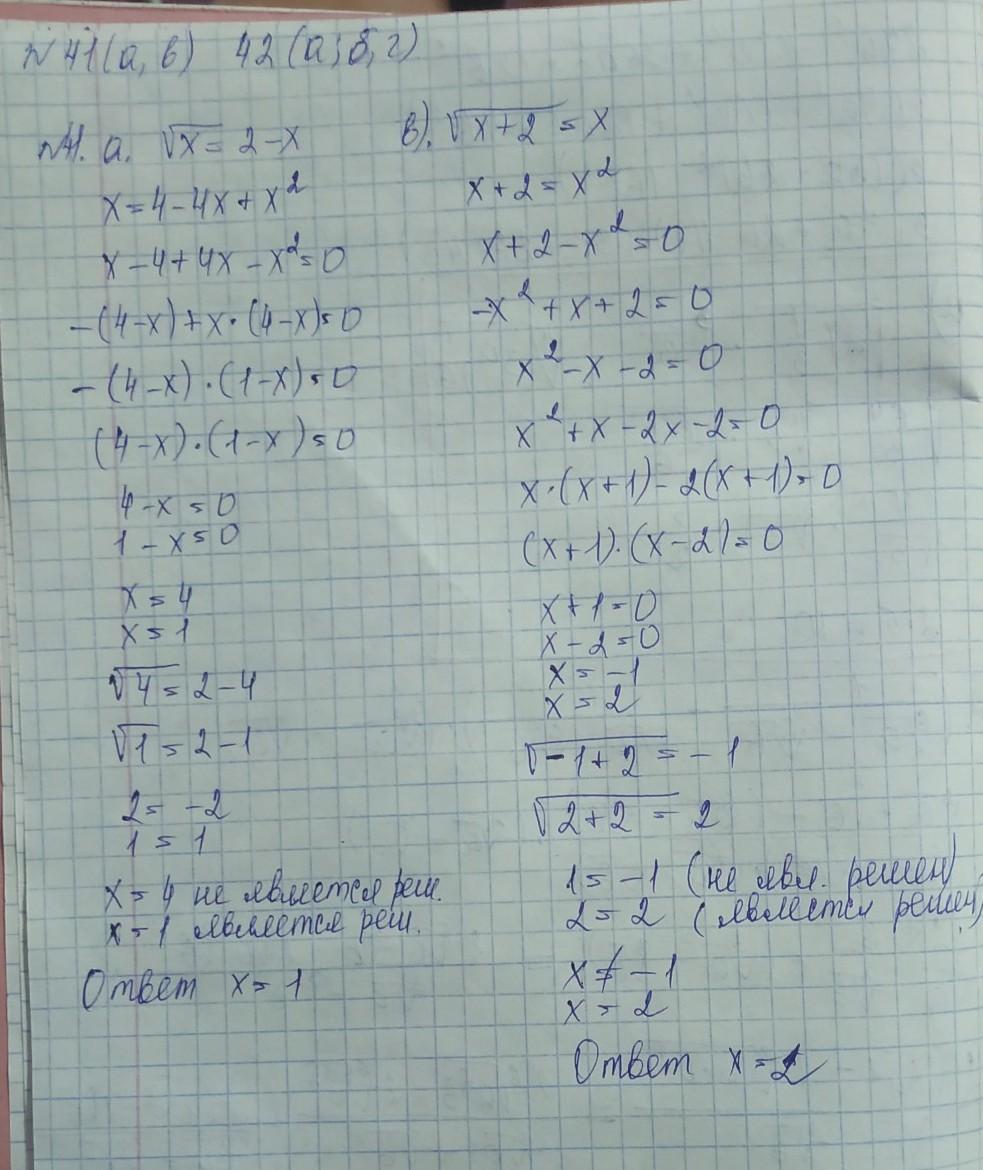 №41(а, в) 42(а; б, г)
№41. а. √x = 2-x
x=4-4x+x²
x-4+4x-x²=0
-(4-x)+x·(4-x)=0
-(4-x)·(1-x)=0
(4-x)·(1-x)=0
4-x=0
1-x=0
x=4
x=1
√4=2-4
√1=2-1
2= -2
1=1
x=4 не является реш.
x=1 является реш.
Ответ x=1
в). √x+2 = x
x+2=x²
x+2-x²=0
-x²+x+2=0
x²-x-2=0
x²+x-2x-2=0
x·(x+1)-2(x+1)=0
(x+1)·(x-2)=0
x+1=0
x-2=0
x=-1
x=2
√-1+2 = -1
√2+2 = 2
1= -1 (не явл. решен)
2=2 (является решен)
x≠-1
x=2
Ответ x=2